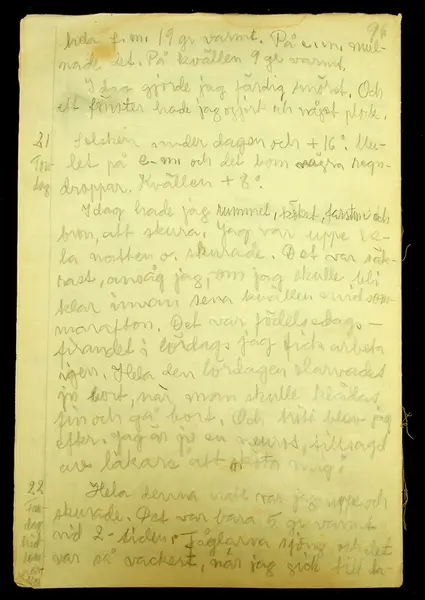 96
hela f.m. 19 gr varmt. På e.m. mul-
nade det. På kvällen 9 gr varmt.
Idag gjorde jag färdig smöret. Och
ett fönster hade jag gjort och något plock.
21 Solsken under dagen och +16°. Mu-
Tors-
let på e-m och det kom några regn-
dag
droppar. Kvällen +8°.
Idag hade jag rummet, köket, farstun och
bron, att skura. Jag var uppe he-
la natten o. skurade. Det var säk-
rast, ansåg jag, om jag skulle bli
klar innan sena kvällen vid som-
marafton. Det var födelsedags-
firandet i lördags jag fick arbeta
igen. Hela den lördagen slarvades
ju bort, när man skulle klädas
fin och gå bort. Och trött blev jag
efter. Jag är ju en neuros, tillsagd
av läkare "att sköta mig".
22 Hela denna natt var jag uppe och
Fre-
dag
skurade. Det var bara 5 gr varmt
vid 2-tiden. Fåglarna sjöng och det
var så vackert, när jag gick till la-